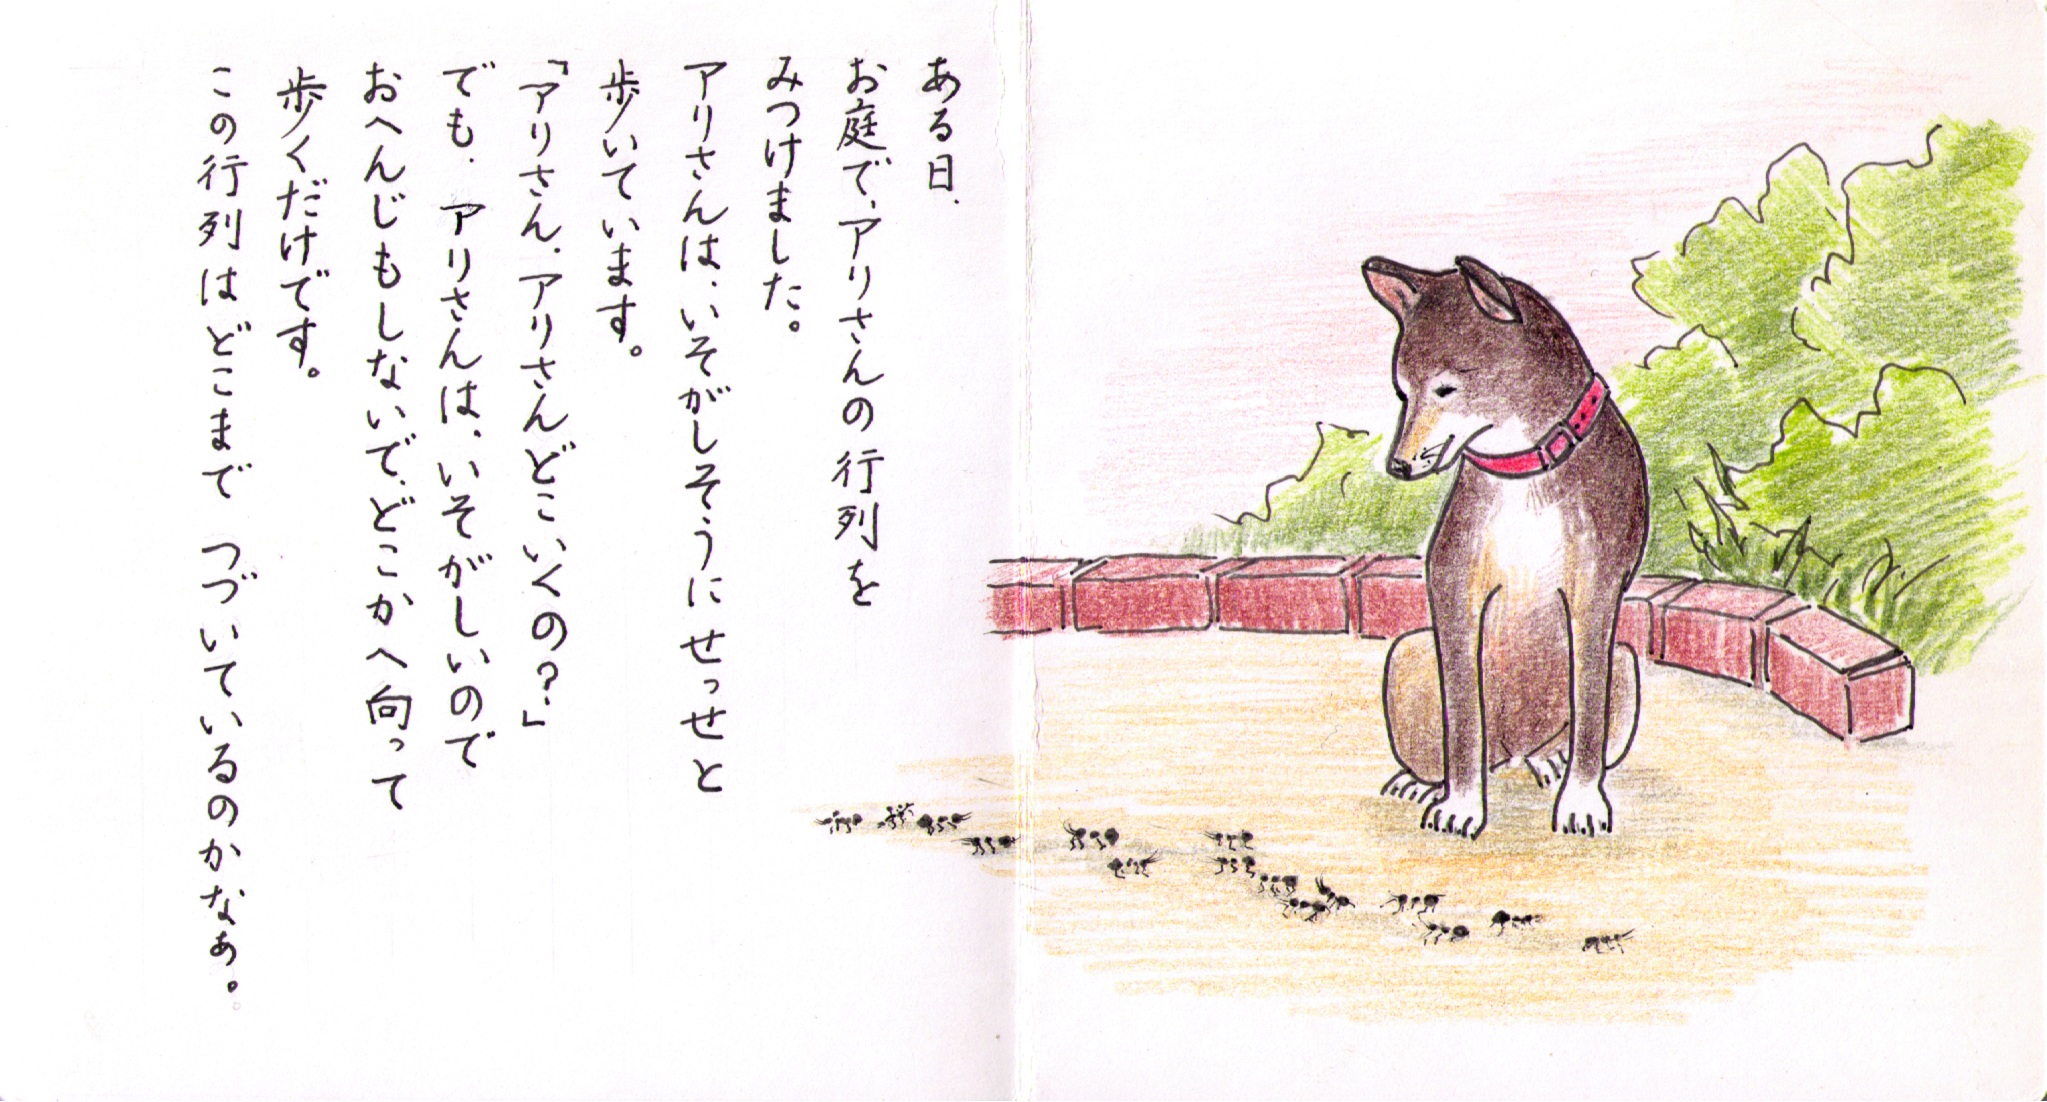 ある日、
お庭で、アリさんの行列を
みつけました。
アリさんは、いそがしそうにせっせと
歩いています。
「アリさん、アリさんどこいくの?」
でも、アリさんは、いそがしいので
おへんじもしないで、どこかへ向って
歩くだけです。
この行列はどこまで つづいているのかなぁ。